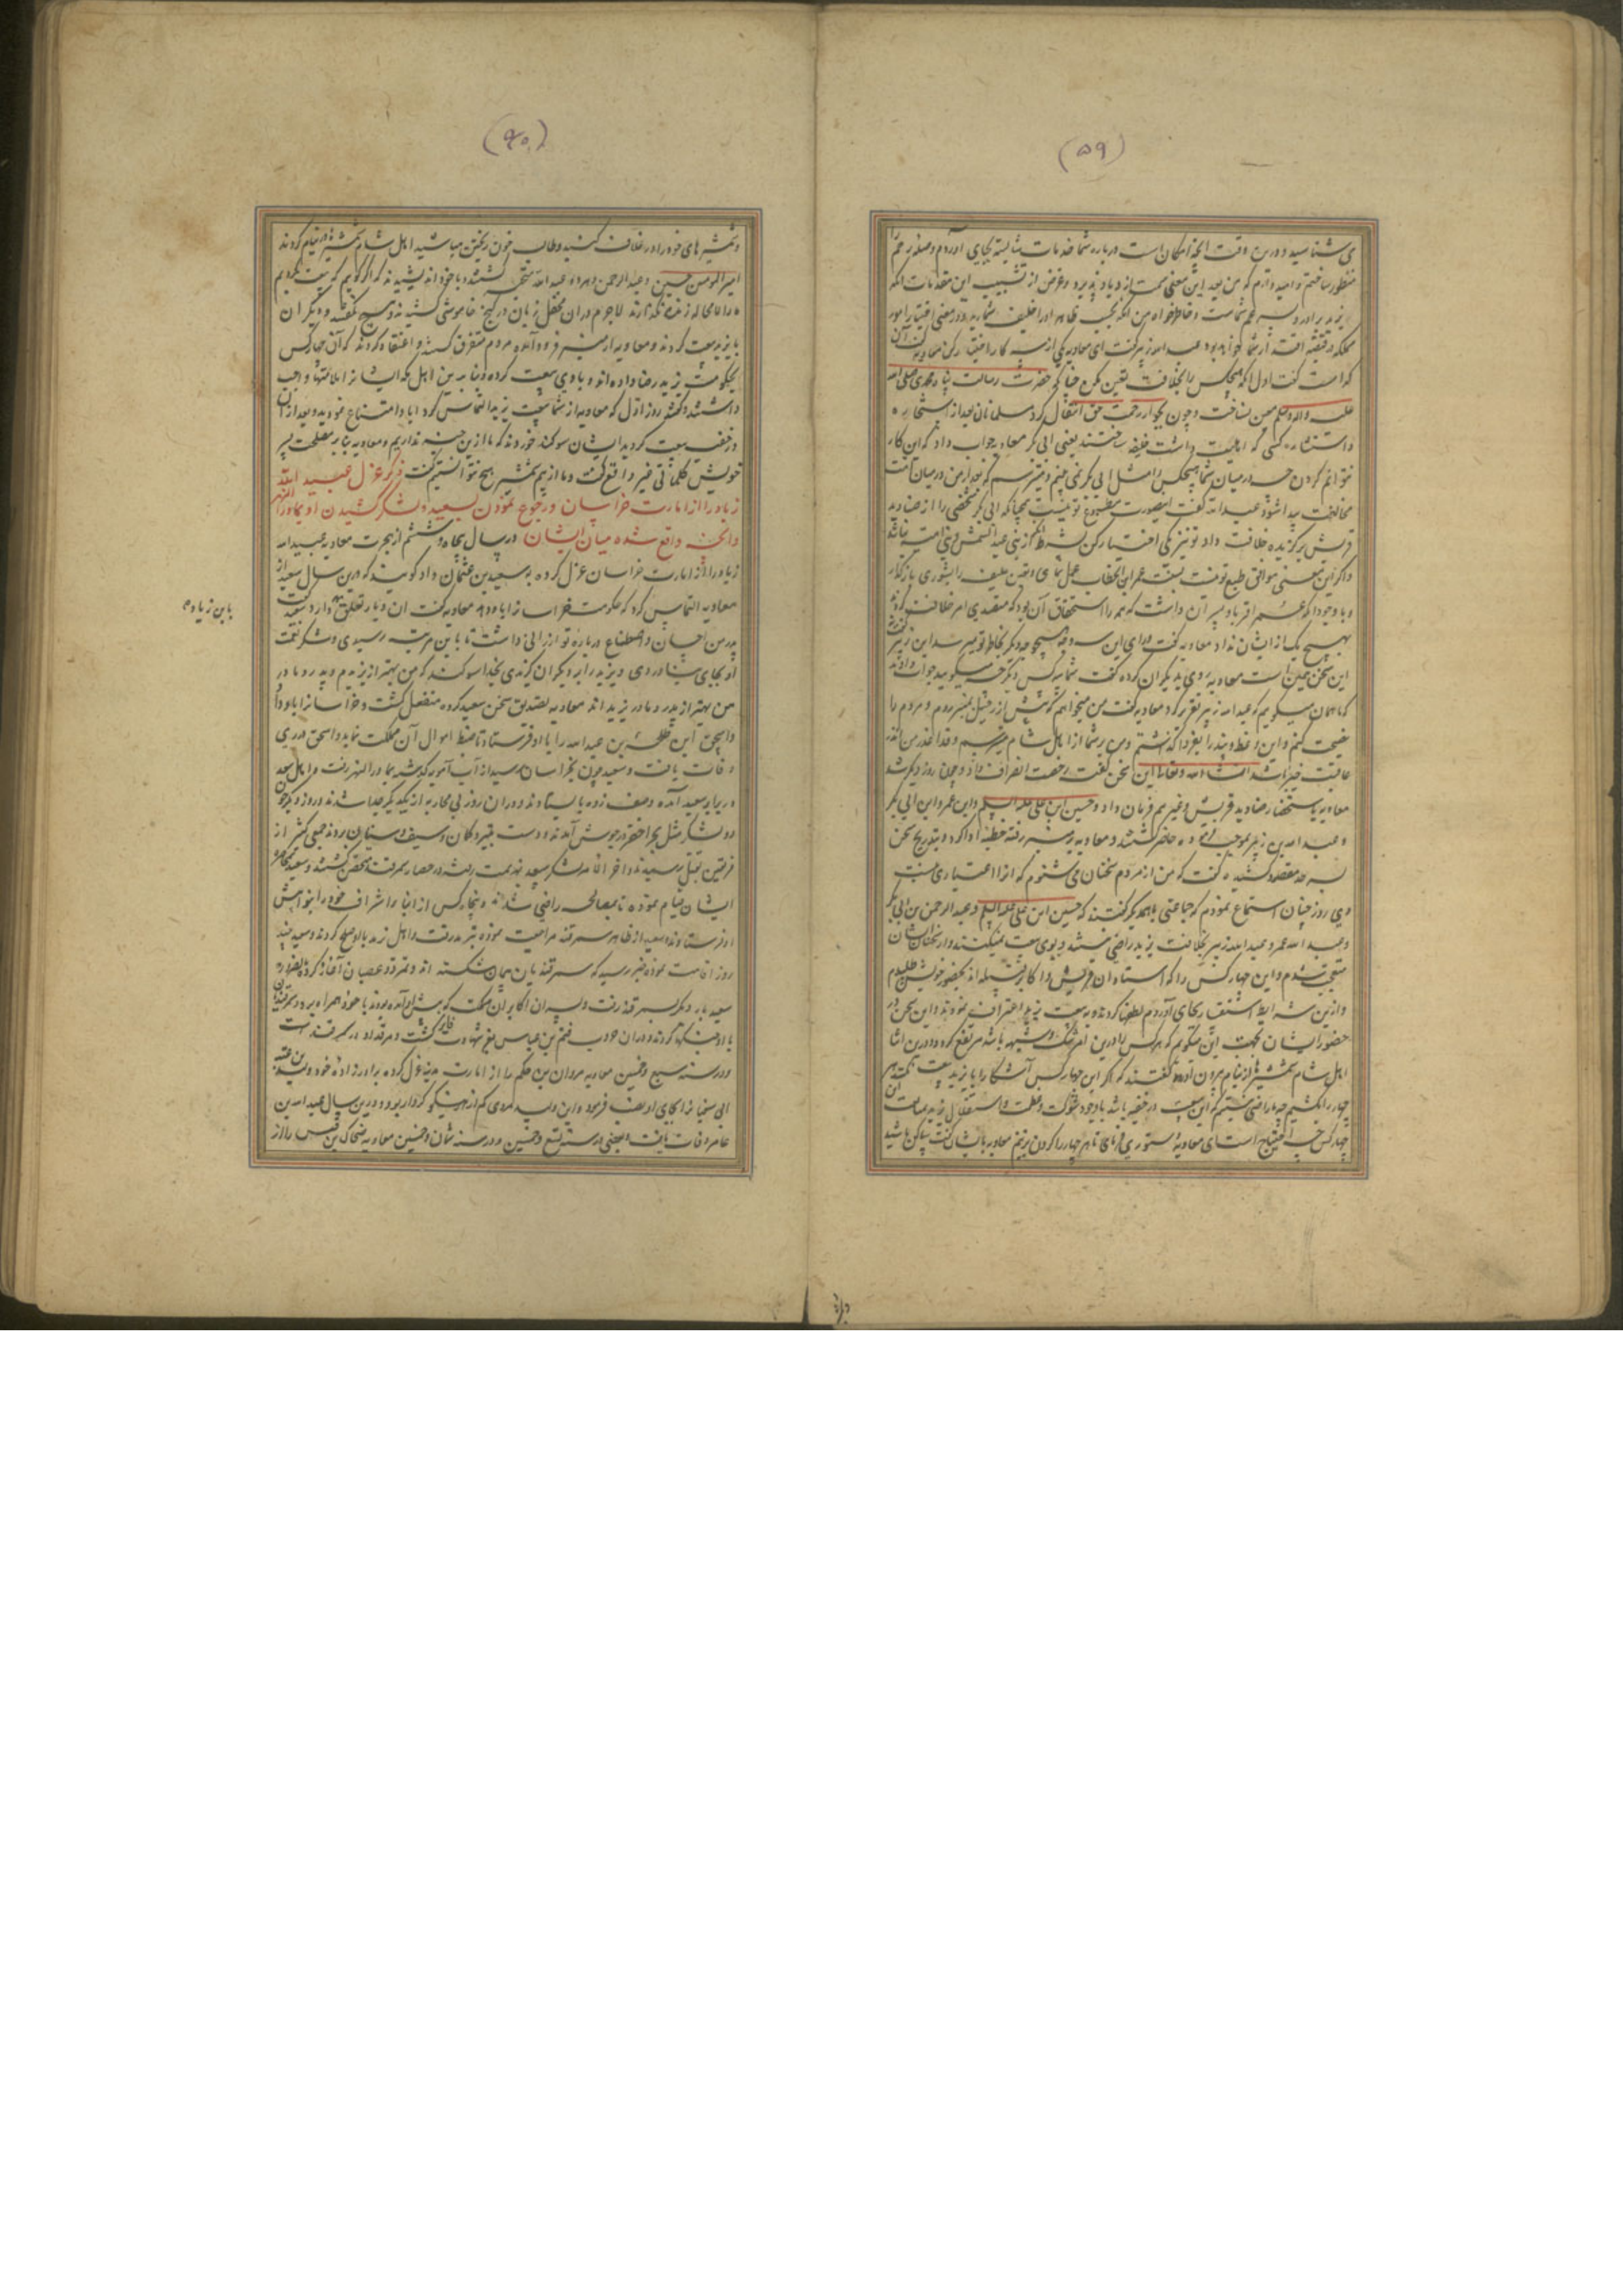 (۵۹)
می شناسید و درین وقت آنچه امکان است درباره شما خدمات شایسته بجای آوردم وصله رحم را
منظور ساختم و امید دارم که من بعد این معنی سمت ازدیاد پذیرد و غرض از تشبیب این مقدمات آنکه
یزید برادر و پسر عم شماست و خاطرخواه من آنکه بحسب ظاهر او را خلیفه شمارید و در معنی اختیار امور
مملکت در قبضه اقتدار شما خواهد بود عبد الله زبیر گفت ای معاویه یکی از سه کار را اختیار کن معاویه گفت آن
کدام است گفت اول آنکه هیچکس را بخلافت تعین مکن چنانکه حضرت رسالت پناه محمدی صلی الله
علیه واله وسلم معین نساخت و چون بجوار رحمت حق انتقال کرد مسلمانان بعد از استخاره
و استشاره کسی که اهلیت داشت خلیفه ساختند یعنی ابی بکر معاویه جواب داد که این کار
نتوانم کردن چه در میان شما هیچکس را مثل ابی بکر نمی بینم و نیز میترسم که بعد از من در میان امت
مخالفت پیدا شود عبد الله گفت اگر این صورت مطبوع تو نیست همچنانکه ابی بکر شخصی را از صنادید
قریش برگزیده خلافت داد تو نیز یکی اختیار کن بشرط آنکه از بنی عبد الشمس و بنی امیه نباشد
و اگر این معنی موافق طبع تو نیست بسنت عمر ابن الخطاب عمل نمای و تعین خلیفه را بشوری بازگذار
و با وجود آنکه عمر اقربا و پسر آن داشت که همه را استحقاق آن بود که متصدی امر خلافت گردند
بهیچ یک از ایشان نداد معاویه گفت ورای این سه وجه هیچ وجه دیگر بخاطر تو میرسد ابن زبیر گفت
این سخن همین است معاویه روی بدیگران کرده گفت شما سه کس دیگر چه میگویید جواب دادند
که ما همان میگویم که عبد الله زبیر تقریر کرد معاویه گفت من میخواهم که پیش از رحیل بمنبر روم و مردم را
نصیحت کنم و این وعظ و پند را بفردا گذاشتم و من بر شما از اهل شام میترسم و قد اعذر من انذر
عاقبت خیر باشد انشاء الله و تعالی این سخن گفت رخصت انصراف داد و چون روز دیگر شد
معاویه باستحضار صنادید قریش و غیرهم فرمان داد و حسین ابن علی علیه السلم و ابن عمر و ابن ابی بکر
و عبد الله بن زبیر بموجب فرموده حاضر گشتند و معاویه بر منبر رفته خطبه ادا کرد و بتدریج سخن
بسرحد مقصود کشیده گفت که من از مردم سخنان می شنوم که انرا اعتباری نیست
دی روز چنان استماع نمودم که جماعتی باهمدیگر گفتند که حسین ابن علی علیه السلم و عبد الرحمن بن ابی بکر
و عبد الله عمر و عبد الله زبیر بخلافت یزید راضی نیستند و بوی بیعت نمیکنند و از سخنان ایشان
متعجب شدم و این چهار کس را که استادان قریش و اکابر قبیله اند بحضور خویش طلبیدم
و از این شرایط استفسار بجای آوردم لطفها کردند و به بیعت یزید اعتراف نمودند و این سخن در
حضور ایشان بجهت این میگویم که هر کس را درین امر شک و شبهه باشد مرتفع گردد و درین اثنا
اهل شام شمشیرها از نیام بیرون آوردند و گفتند که اگر این چهار کس آشکارا با یزید بیعت نکنند هر
چهار را بکشیم چه ما راضی نیستیم که این بیعت در خفیه باشد با وجود شوکت و عظمت و استقلال یزید بمبایعت این
چهار کس چه احتیاج است ای معاویه دستوری فرمای تا هر چهار را گردن بزنیم معاویه با ایشان گفت ساکن باشید
(۶۰)
و شمشیرهای خود را در غلاف کنید و طالب خون ریختن مباشید اهل شام شمشیرها در نیام کردند
امیر المومنین حسین و عبد الرحمن و هر دو عبد الله متحیر گشتند و با خود اندیشیدند که اگر گویم که بیعت نکردیم
ما را لا محاله زنده نگذارند لاجرم در آن محفل زبان در کنج خاموشی کشیدند و هیچ نگفتند و دیگران
با یزید بیعت کردند و معاویه از منبر فرود آمده مردم متفرق گشتند و اعتقاد کردند که آن چهار کس
بحکومت یزید رضا داده اند و با وی بیعت کرده و بنابرین اهل مکه ایشانرا ملامتها واجب
داشتند و گفتند روز اول که معاویه از شما بیعت یزید التماس کرد ابا و امتناع نمودید و بعد از آن
در خفیه بیعت کردید ایشان سوگند خوردند که ما ازین خبر نداریم و معاویه بنابر مصلحت پسر
خویش کلماتی غیر واقع گفت و ما از بیم شمشیر هیچ نتوانستیم گفت ذکر عزل عبید الله
زیاد را از امارت خراسان و رجوع نمودن بسعید و لشکر کشیدن او بماوراء النهر
و آنچه واقع شده میان ایشان در سال پنجاه و ششم از هجرت معاویه عبید الله
زیاد را از امارت خراسان عزل کرده به سعید بن عثمان داد گویند که درین سال سعید از
معاویه التماس کرد که حکومت خراسانرا باو دهد معاویه گفت آن دیار تعلق به دارد سعید گفت
باین زیاد ه
پدر من احسان و اصطناع درباره تو ارزانی داشت تا باین مرتبه رسیدی و شکر نعمت
او بجای نیاوردی و یزید را بر دیگران گزیدی بخدا سوگند که من بهتر از یزیدم و پدر و مادر
من بهتر از پدر و مادر یزید اند معاویه تصدیق سخن سعید کرده منفعل گشت و خراسانرا باو داد
و اسحق ابن طلحه بن عبید الله را با او فرستاد تا ضبط اموال آن مملکت نماید و اسحق در ری
وفات یافت و سعید چون بخراسان رسید از آب آمویه گذشته بماوراء النهر رفت و اهل سغد
در برابر سعید آمده وصف زده بایستادند و در آن روز بی محاربه از یکدیگر جدا شدند و روز دیگر چون
دو لشکر مثل بحر اخضر در جوش آمدند و دست بتیر و کمان و سیف و سنان بردند جمعی کثیر از
فریقین بقتل رسیدند و آخر الامر لشکر سغد هزیمت رفته در حصار سمرقند متحصن گشتند و سعید بمحاصره
ایشان قیام نموده تا بمصالحه راضی شدند و پنجاه کس از ابنا و اشراف خود را بنوایش
او فرستادند و سعید از ظاهر سمرقند مراجعت نموده بترمد رفت و اهل ترمد با او صلح کردند و سعید چند
روز اقامت نموده خبر رسید که سمرقندیان پیمان شکسته اند و تمرد و عصیان آغاز کرده بضروره
سعید بار دیگر بسمرقند رفت و پسران اکابر آن مملکت که پیش او آمده بودند با خود همراه برد و سمرقندیان
با او جنگها کردند و در آن حرب قثم بن عباس بفیض شهادت فایز گشت و مرقد او در سمرقند است
و در سنه سبع و خمسین معاویه مروان بن حکم را از امارت مدینه عزل کرده برادر زاده خود ولید بن عتبه
ابی سفیانرا بجای او نصب فرمود و این ولید مردی کم آزار نیکو کردار بود و درین سال عبد الله بن
عامر وفات یافت و بعضی در سنه تسع و خمسین و در سنه ثمان و خمسین معاویه ضحاک بن قیس را از